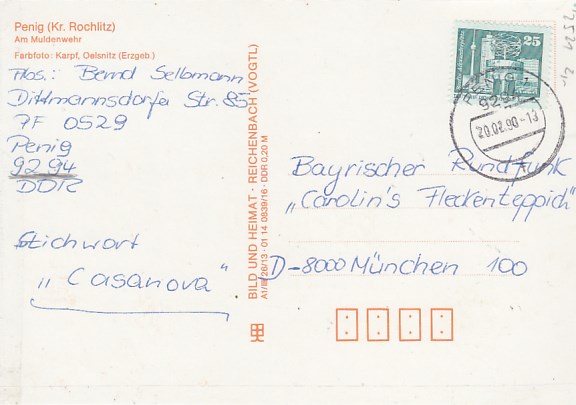 Penig (Kr. Rochlitz)
Am Muldenwehr
Farbfoto: Karpf, Oelsnitz (Erzgeb.)
Abs.: Bernd Selbmann
Dittmannsdorfer Str. 85
7F 0529
Penig
9294
DDR
Stichwort
„Casanova"
BILD UND HEIMAT · REICHENBACH (VOGTL)
A1/B 26/13 · 01 14 0839/16 · DDR 0,20 M
25
20.02.90-13
Bayrischer Rundfunk
„Carolin's Fleckenteppich"
D-8000 München 100